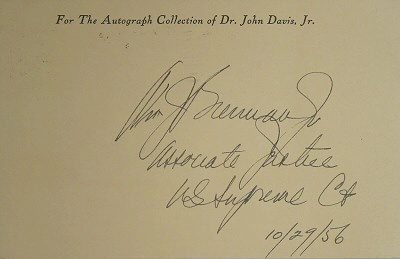 For The Autograph Collection of Dr. John Davis, Jr.
Wm J Brennan Jr
Associate Justice
US Supreme Ct
10/29/56